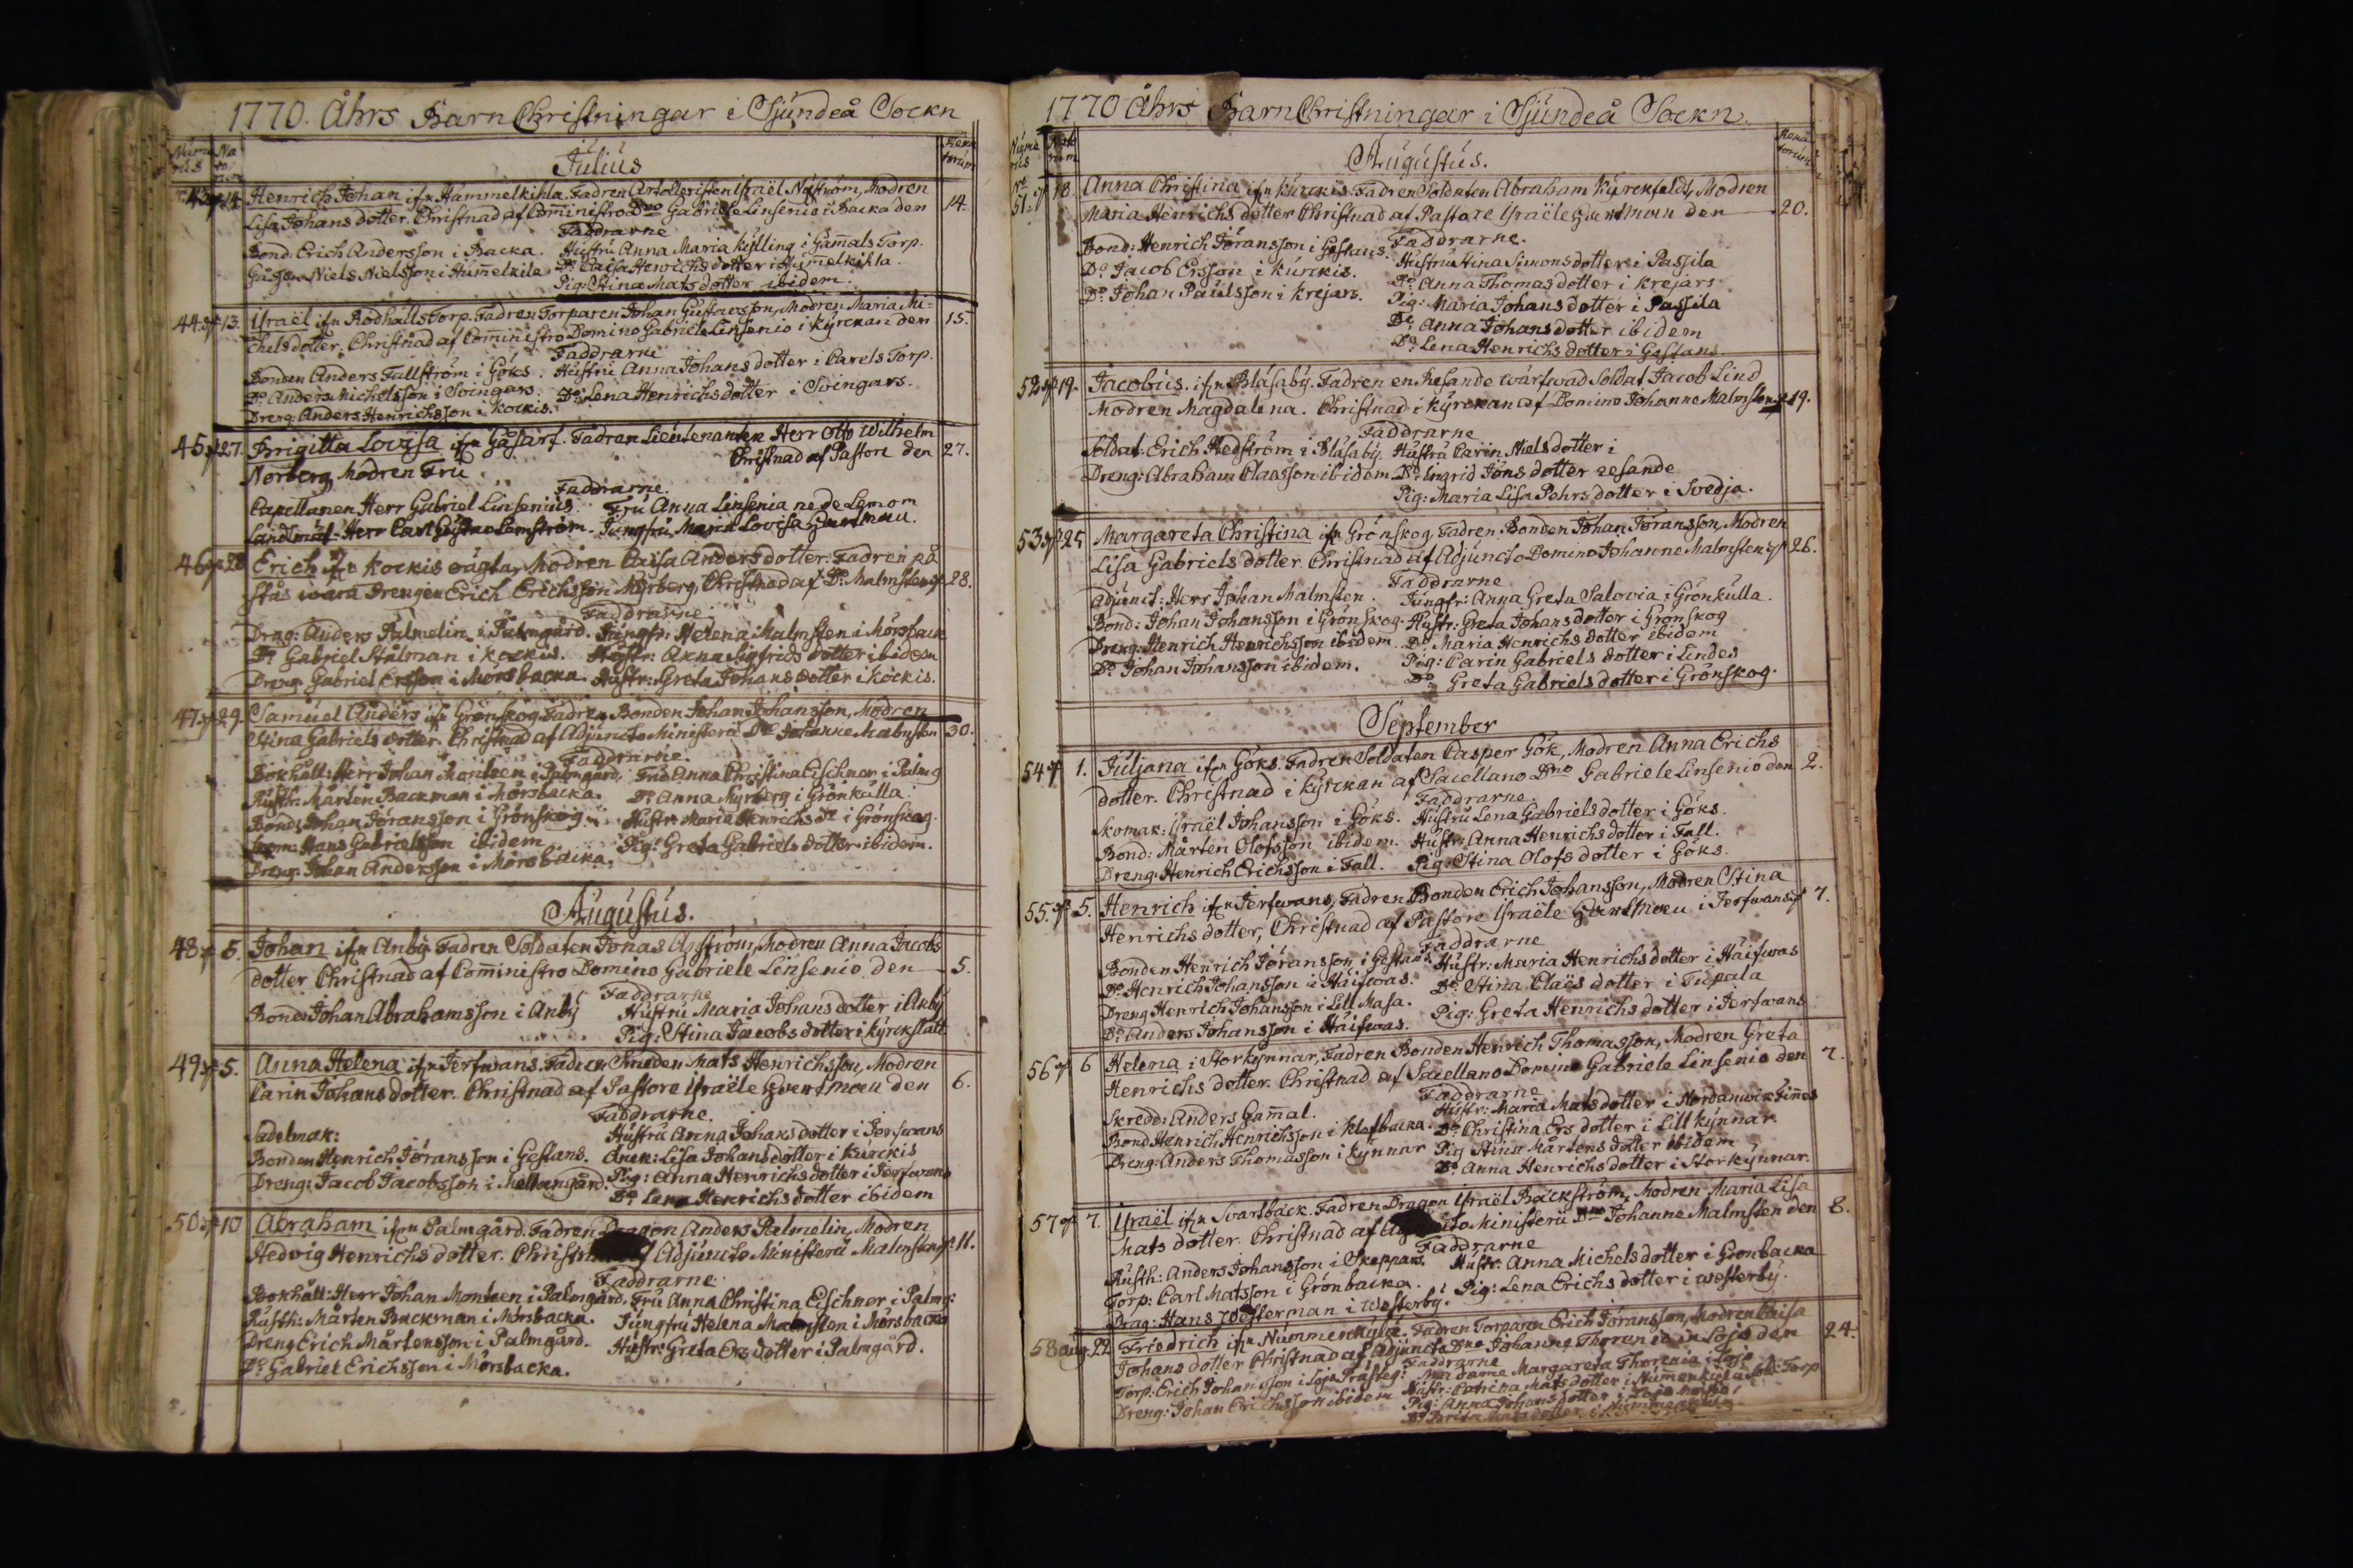 1770. Åhrs Barn Christningar i Sjundeå Sockn
Numerus
Natorum
Renatorum
Julius
43 14. Henrich Johan ifrn Hummelkihla. Fadren Artolleristen Israël Nyström, Modren
Lisa Johans dotter. Christnad af Comministro Dno Gabriele Linsenio i Backa den 14.
Faddrarne
Bond. Erich Andersson i Backa. Hustru Anna Maria Kylling i Gammals Torp.
Niels Nielsson i Hummelkila Do Caisa Henrichs dotter i Hummelkihla.
Pig: Stina Mats dotter ibidem.
44 13. Israël ifrn Rödhälls Torp. Fadren Torparen Johan Gustavsson, Modren Maria Mi-
chels dotter. Christnad af Comministro Domino Gabriele Linsenio i kyrckan den 15.
Faddrarne
Bonden Anders Fallström i Göks. Hustru Anna Johans dotter i Carels Torp.
Do Anders Michelsson i Svingars. Do Lena Henrichs dotter i Svingars.
Dreng: Anders Henrichsson i Kockis.
45 27. Brigitta Lovisa ifrn Gåsarf. Fadren Lieutenanten Herr Otto Wilhelm
Norberg Modren Fru Christnad af Pastore den 27.
Faddrarne
Capellanen Herr Gabriel Linsenius. Fru Anna Linsenia nede Lemon
Landtmät: Herr Carl Gustav Lemström. Jungfru Maria Lovisa
46 28 Erich ifrn Kockis oägta, Modren Caisa Anders dotter. Fadren på
stås wara Drengen Erich Erichsson Myrberg, Christnad af Do Malmsten 28.
Faddrarne
Drag: Anders Palmelin i Palmgård. Jungfr: Helena Malmsten i Mörsback
Do Gabriel Stålman i Kockis. Hustr: Anna Sigfrids dotter ibidem
Dreng Gabriel Ersson i Mörsbacka. Hustr: Greta Johans dotter i Kockis.
47 29. Samuel Anders ifrn Grönskog Fadren Bonden Johan Johansson, Modren
Stina Gabriels dotter. Christnad af Adjuncto Ministerii Dno Johanne Malmsten 30.
Faddrarne.
Bokhåll: Herr Johan Monteen i Palmgård, Fru Anna Christina Eischner i Palmg
Rusth: Mårten Backman i Mörsbacka. Do Anna Myrberg i Grönkulla.
Bond: Johan Jöransson i Grönskog. Hustr: Maria Henrichs dr i Grönskog.
Hans Gabrielsson ibidem Pig: Greta Gabriels dotter ibidem.
Dreng: Johan Andersson i Mörsbacka.
Augustus.
48 5. Johan ifrn Anby Fadren Soldaten Jonas Apström, Modren Anna Jacobs
dotter Christnad af Comministro Domino Gabriele Linsenio den 5.
Faddrarne
Bond: Johan Abrahamsson i Anby Hustru Maria Johans dotter i Anby
Pig: Stina Jacobs dotter i Kyrckslätt.
49 5. Anna Helena ifrn Jerfwans. Fadren Smeden Mats Henrichsson, Modren
Carin Johans dotter. Christnad af Pastore Israële den 6.
Faddrarne.
Sadelmak: Hustru Anna Johans dotter i Jerfwans
Bonden Henrich Jöransson i Gestans. Lisa Johans dotter i Kurckis
Dreng: Jacob Jacobsson i Mellangård. Pig: Anna Henrichs dotter i Jerfwans
Do Lena Henrichs dotter ibidem
50 10 Abraham ifrn Palmgård. Fadren Dragon Anders Palmelin, Modren
Hedvig Henrichs dotter. Adjuncto Ministerii Malmsten 11.
Faddrarne.
Bokhåll: Herr Johan Monteen i Palmgård. Fru Anna Christina Eischner i Palmg:
Rusth: Mårten Backman i Mörsbacka. Jungfru Helena Malmsten i Mörsbacka
Dreng Erich Mårtensson i Palmgård. Hustr: Greta Ers dotter i Palmgård.
Do Gabriel Erichsson i Mörsbacka.
1770 Åhrs Barn Christningar i Sjundeå Sockn.
Numerus
Renatorum
Augustus.
No 51 18. Anna Christina ifrn Kurckis. Fadren Soldaten Abraham Kyrckfeldt, Modren
Maria Henrichs dotter Christnad af Pastore Israële den 20.
Faddrarne.
Bond: Henrich Jöransson i Gestans. Hustru Stina Simons dotter i Passila
Do Jacob Ersson i Kurckis. Do Anna Thomas dotter i Krejars
Do Johan Paulsson i Krejars. Pig: Maria Johans dotter i Passila
Do Anna Johans dotter ibidem
Do Lena Henrichs dotter i Gestans
52 19. Jacobus. ifrn Blåsaby. Fadren en Resande wärfwad Soldat Jacob Lind
Modren Magdalena. Christnad i kyrckan af Domino Johanne Malmsten 19.
Faddrarne
Soldat: Erich Hedström i Blåsaby. Hustru Carin Niels dotter i
Dreng: Abraham Claasson ibidem. Do Ingrid Jöns dotter resande
Pig: Maria Lisa Pehrs dotter i Svedja.
53 25 Margareta Christina ifrn Grönskog. Fadren Bonden Johan Jöransson, Modren
Lisa Gabriels dotter. Christnad af Adjuncto Domino Johanne Malmsten 26.
Faddrarne
Adjunct: Herr Johan Malmsten. Jungfr: Anna Greta Salovia i Grönkulla.
Bond: Johan Johansson i Grönskog. Hustr: Greta Johans dotter i Grönskog
Dreng: Henrich Henrichsson ibidem. Do Maria Henrichs dotter ibidem
Do Johan Johansson ibidem. Pig: Carin Gabriels dotter i Lindes
Do Greta Gabriels dotter i Grönskog.
September
54 1. Juljana ifrn Göks. Fadren Soldaten Casper Gök, Modren Anna Erichs
dotter. Christnad i kyrckan af Sacellano Dno Gabriele Linsenio den 2.
Faddrarne
Skomak: Israël Johansson i Göks. Hustru Lena Gabriels dotter i Göks.
Bond: Mårten Olofsson ibidem. Hustr: Anna Henrichs dotter i Fall.
Dreng: Henrich Erichsson i Fall. Pig: Stina Olofs dotter i Göks.
55. 5. Henrich ifrn Jerfwans, Fadren Bonden Erich Johansson, Modren Stina
Henrichs dotter, Christnad af Pastore Israële i Jerfwans 7.
Faddrarne
Bonden Henrich Jöransson i Gestans. Hustr: Maria Henrichs dotter i Häifwas
Do Henrich Johansson i Häifwas. Do Stina Claës dotter i Tupala
Dreng Henrich Johansson i Lill Masa. Pig: Greta Henrichs dotter i Jerfwans
Do Anders Johansson i Häifwas.
56 6 Helena i Storkynnar, Fadren Bonden Henrich Thomasson, Modren Greta
Henrichs dotter. Christnad af Sacellano Domino Gabriele Linsenio den 7.
Faddrarne
Skredd: Anders Gammal. Hustr: Maria Mats dotter i Nordanwik
Bond Henrich Henrichsson i Klefbacka. Do Christina Ers dotter i Lill kynnar.
Dreng: Anders Thomasson i kynnar Pig Stina Mårtens dotter ibidem
Do Anna Henrichs dotter i Storkynnar.
57 7. Israël ifrn Svartback. Fadren Dragon Israël Backström, Modren Maria Lisa
Mats dotter. Christnad af Ministerii Dno Johanne Malmsten den 8.
Faddrarne
Rusth: Anders Johansson i Skeppars. Hustr: Anna Michels dotter i Grönbacka
Torp: Carl Matsson i Grönbacka. Pig: Lena Erichs dotter i Westerby.
Drag: Hans Wästerman i Westerby.
58 aug. 22 Friedrich ifrn Nummenkylä. Fadren Torparen Erich Jöransson, Modren Caisa
Johans dotter Christnad af Adjuncto Dno Johanne Lojo den 24.
Faddrarne
Torp: Erich Johansson i Lojo Madame Margareta Thorenia i Lojo
Dreng: Johan Erichsson ibidem Hustr: Catrina Mats dotter i
Pig: Anna Johans dotter i Lojo